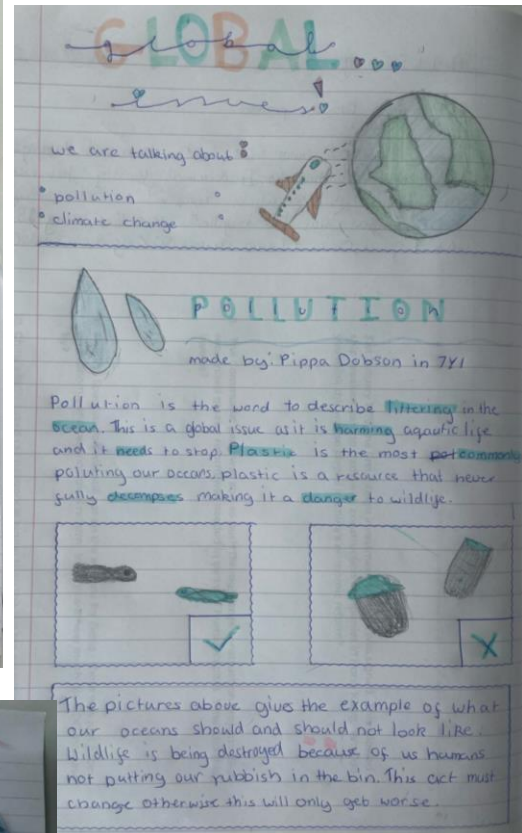 GLOBAL
global...
issues!
we are talking about:
pollution
climate change
POLLUTION
made by: Pippa Dobson in 7Y1
Pollution is the word to describe littering in the
ocean. This is a global issue as it is harming aqautic life
and it needs to stop. Plastic is the most pol commonly
poluting our oceans, plastic is a resource that never
fully decompses making it a danger to wildlife.
The pictures above gives the example of what
our oceans should and should not look like.
Wildlife is being destroyed because of us humans
not putting our rubbish in the bin. This act must
change otherwise this will only get worse.